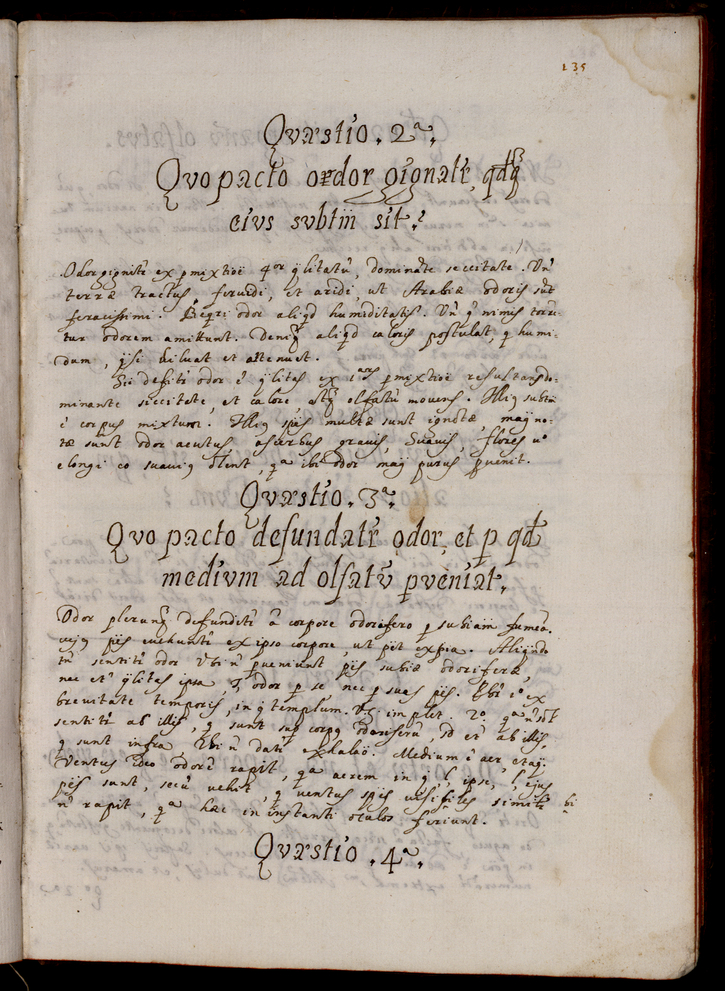 135
Qvæstio. 2ª.
Qvo pacto ordor gignatr, qdq
eivs svbtm sit?
Odor gignitr ex pmixtioe 4or qlitatu, dominate siccitate. Un
terræ tractus, fervidi, et aridi, ut Arabiæ odoris sut
feracissimi. Reqri odor aliqd humiditatis. Un q nimis torre-
tur odorem amittunt. Deniq aliqd caloris postulat, q humi-
dum, qsi diluat et attenuet.
Sic defitr odor e qlitas ex pmixtioe resultans do-
minante siccitate, et calore, atq olfatu movens. Illiq subtm
e corpus mixtum. Illiq spes multæ sunt ignotæ, maj no-
tæ sunt odor acutus, acerbus gravis, Suavis, flores
e longi co suaviq olent, qª ibi odor maj purus pvenit.
Qvæstio. 3ª.
Qvo pacto defundatr odor, et p qd
medivm ad olfatu pveniat.
Odor plerunq defunditr a corpore odorifero p fumea.
cujq ptes evehuntr ex ipso corpore, ut pit expia. Aliqndo
tn sentitr odor Ubi n pveniunt ptes odoriferæ,
nec et qlitas ipsa, odor p se nec p suas ptes. ex
brevitate temporis, in q templum. Vg. implet. 2º qª
sentitr ab illis, q sunt sup corpq odoriferu, id e ab illis,
q sunt infra Ubi n datr exhalao. Medium e aer, et aq.
Ventus ideo odore rapit, qª aerem in q, l ipse, l ejus
ptes sunt, secu vehit, q ventus spes visibiles
n rapit, qª hæc in instanti oculos feriunt.
Qvæstio. 4ª.